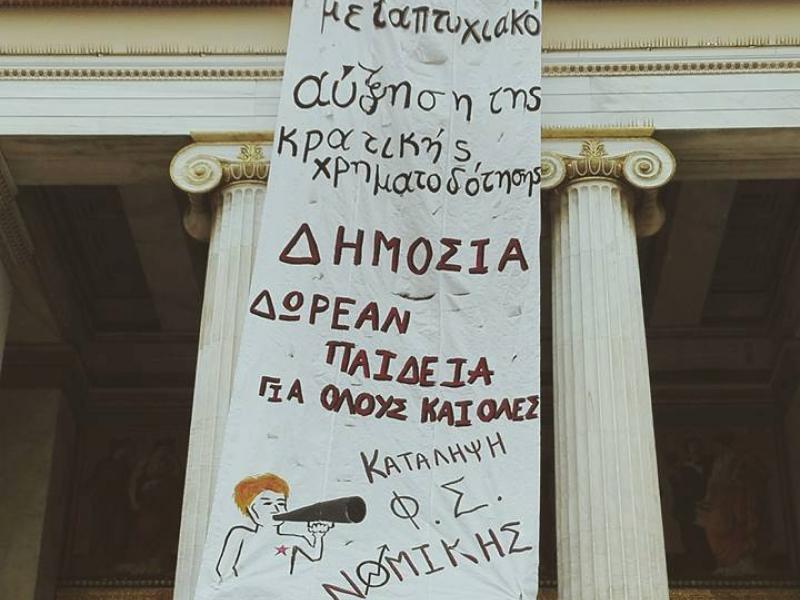 μεταπτυχιακό
αύξηση της
κρατικής
χρηματοδότησης
ΔΗΜΟΣΙΑ
ΔΩΡΕΑΝ
ΠΑΙΔΕΙΑ
ΓΙΑ ΟΛΟΥΣ ΚΑΙ ΟΛΕΣ
ΚΑΤΑΛΗΨΗ
Φ.Σ.
ΝΟΜΙΚΗΣ